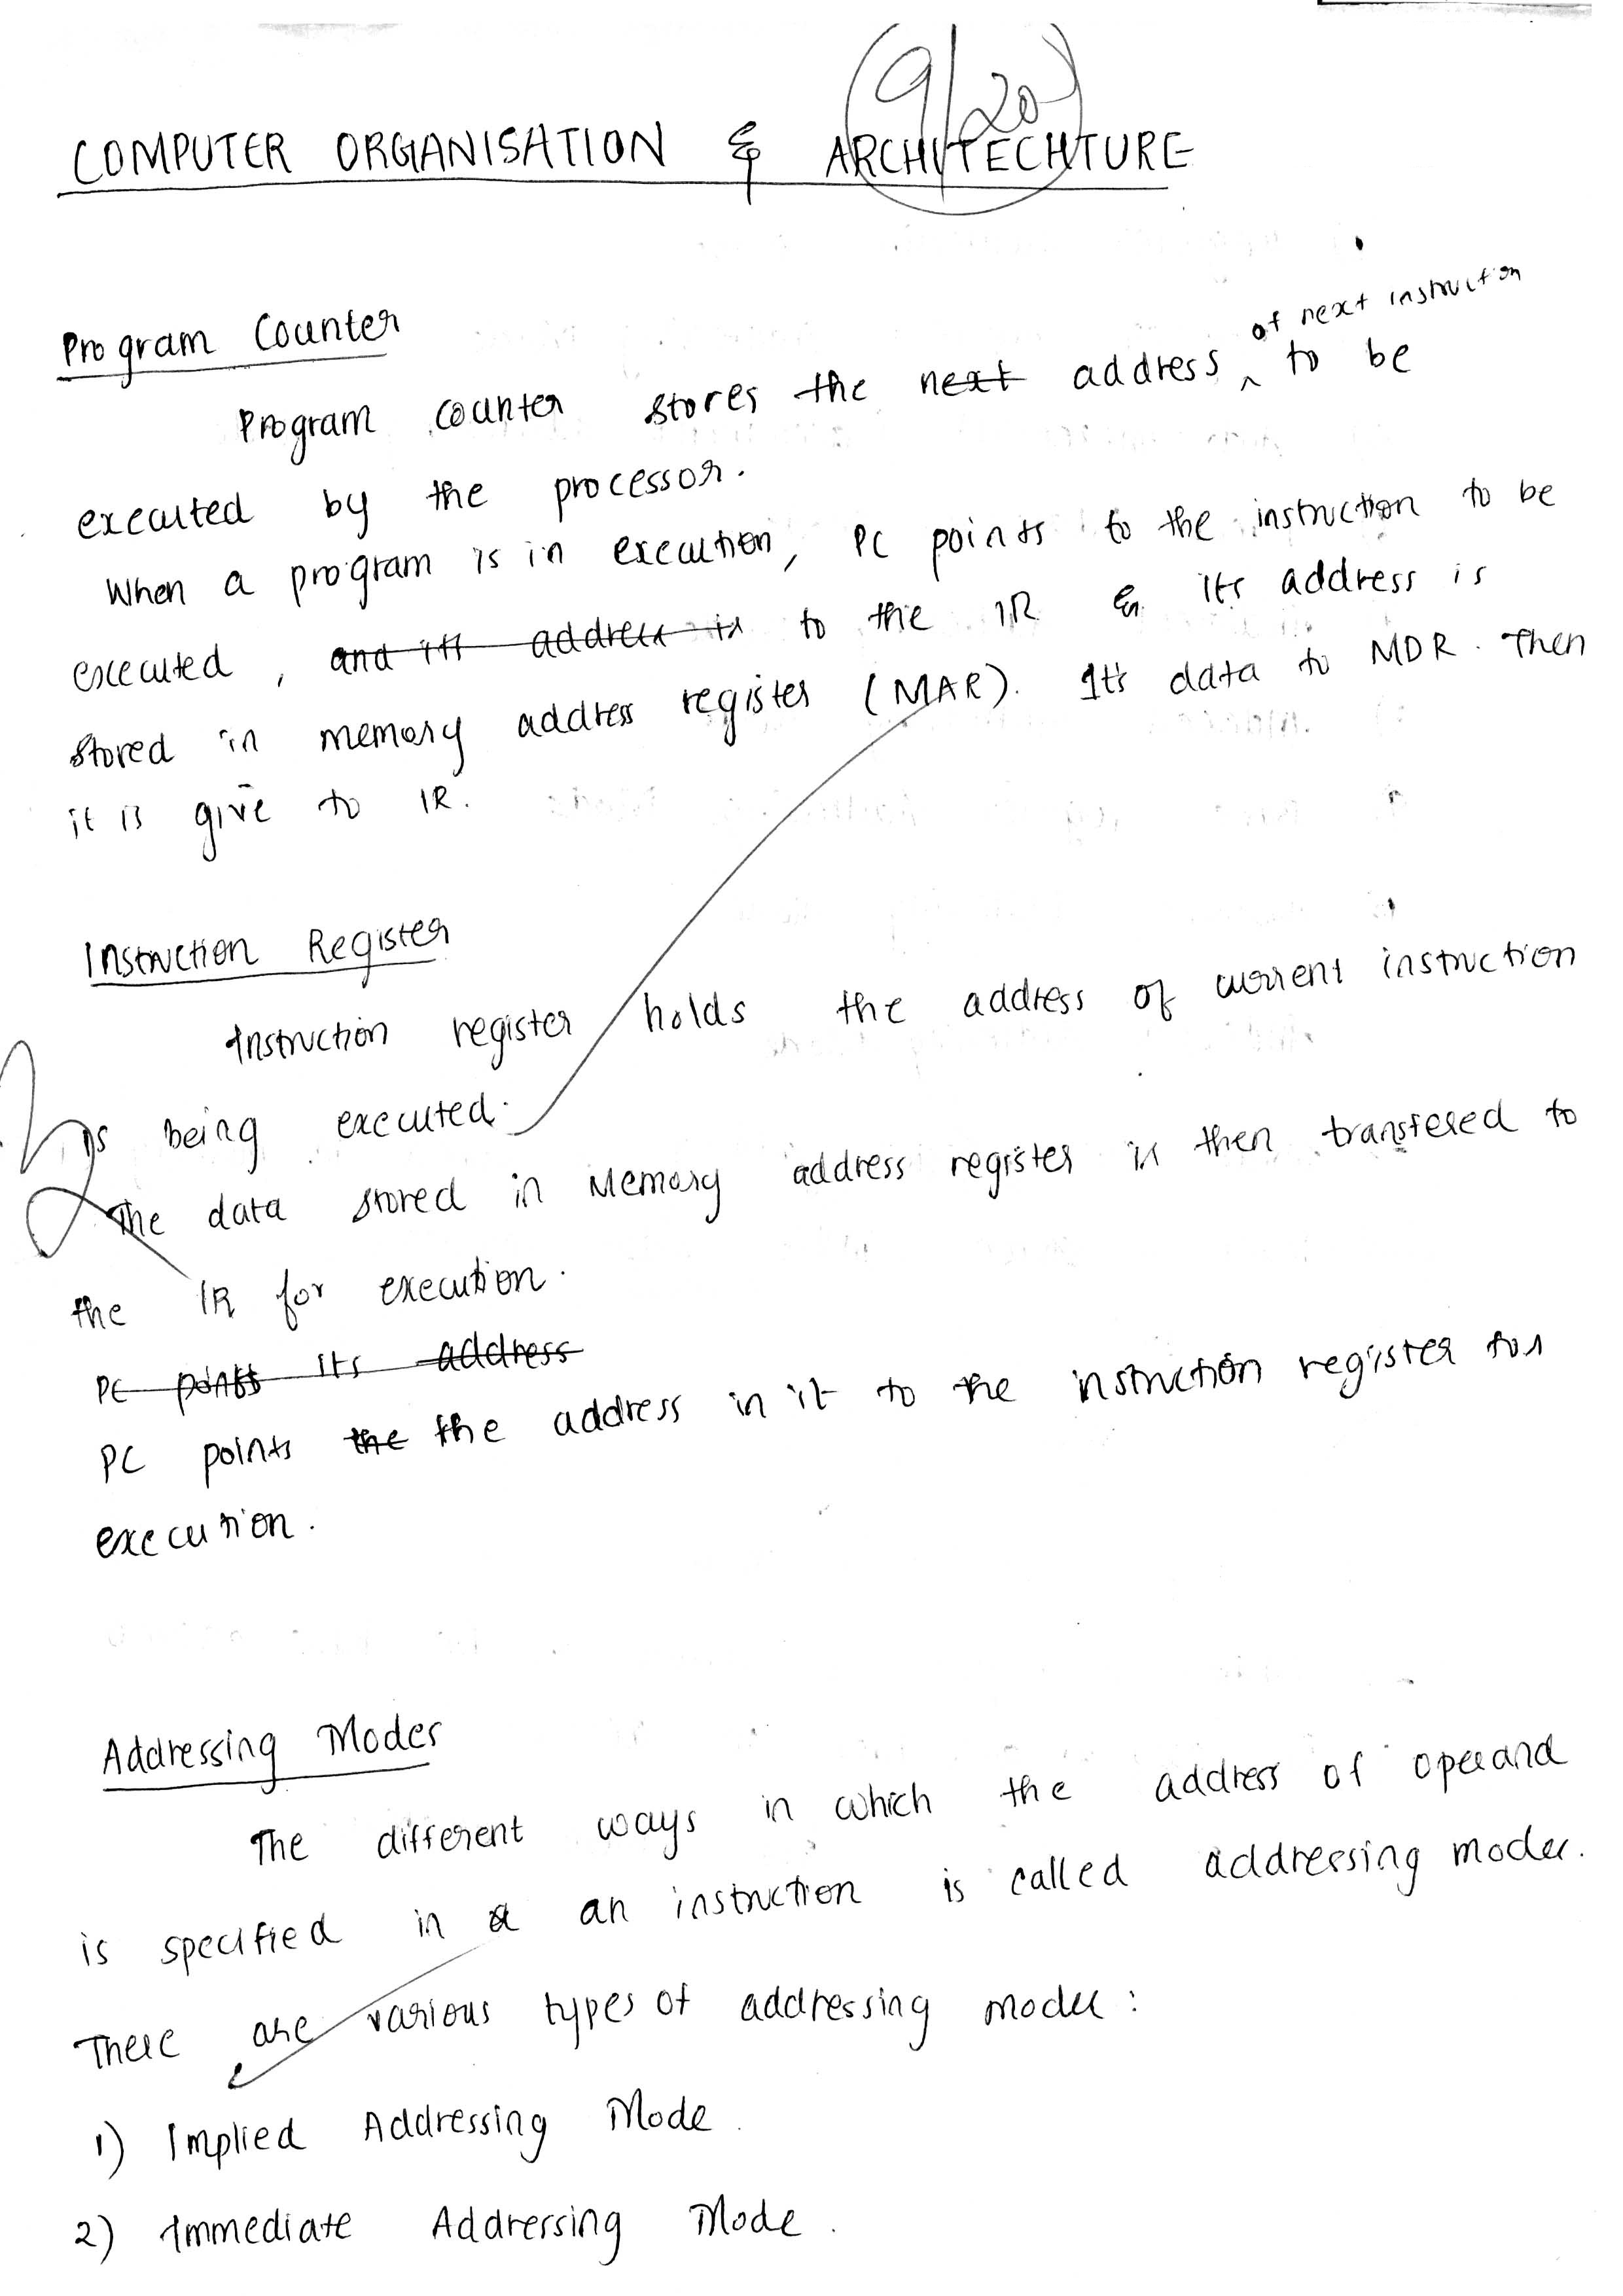 9/20
COMPUTER ORGANISATION & ARCHITECHTURE
Program Counter
of next instruction
Program counter stores the next address ^ to be
executed by the processor.
When a program is in execution, PC points to the instruction to be
executed, and its address is to the IR & its address is
stored in memory address register (MAR). It's data to MDR. Then
it is give to IR.
Instruction Register
Instruction register holds the address of current instruction
is being executed.
The data stored in Memory address register is then transfered to
the IR for execution.
PC points its address
PC points the the address in it to the instruction register for
execution.
Addressing Modes
The different ways in which the address of operand
is specified in a an instruction is called addressing modes.
There are various types of addressing modes:
1) Implied Addressing Mode.
2) Immediate Addressing Mode.